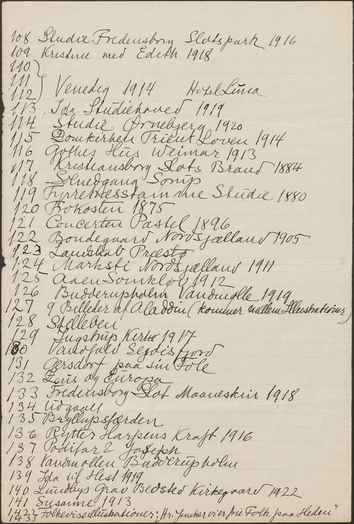 108 Studie Fredensborg Slotspark 1916
109 Kristine med Edith 1918
110
111
112 Venedig 1914 Hotel Luna
113 Ida Studiehoved 1919
114 Studie Ørnebjerg 1920
115 Domkirken Trient Loven 1914
116 Gothes Hus Weimar 1913
117 Kristiansborg Slots Brand 1884
118
119 Fyrretræsstamme Studie 1880
120 Rokosten 1875
121 Concerten Pastel 1896
122 Bondegaard Nordsjælland 1905
123 Landskab Præstø
124 Marksti Nordsjælland 1911
125 1912
126 Budderupholm Vandmølle 1919
127 9 Billeder af Aladdin (kommer mellem Illustrations)
128
129 Kirke 1917
130 Vandfald
131 paa sin Fole
132 Zeus og Europa
133 Fredensborg Slot Maaneskin 1918
134 Udgaaet
135 Bryllupsfærden
136 Rytter Harpens Kraft 1916
137 Potifar 2 Joseph
138 Vandmøllen Budderupholm
139 Ida til Hest 1919
140 Lundbys Grav Bedsted Kirkegaard 1922
141 Susanne 1913
1422
1433 Folkeviseillustrationer: "Hr. Junker vier fire Folk paa Heden"